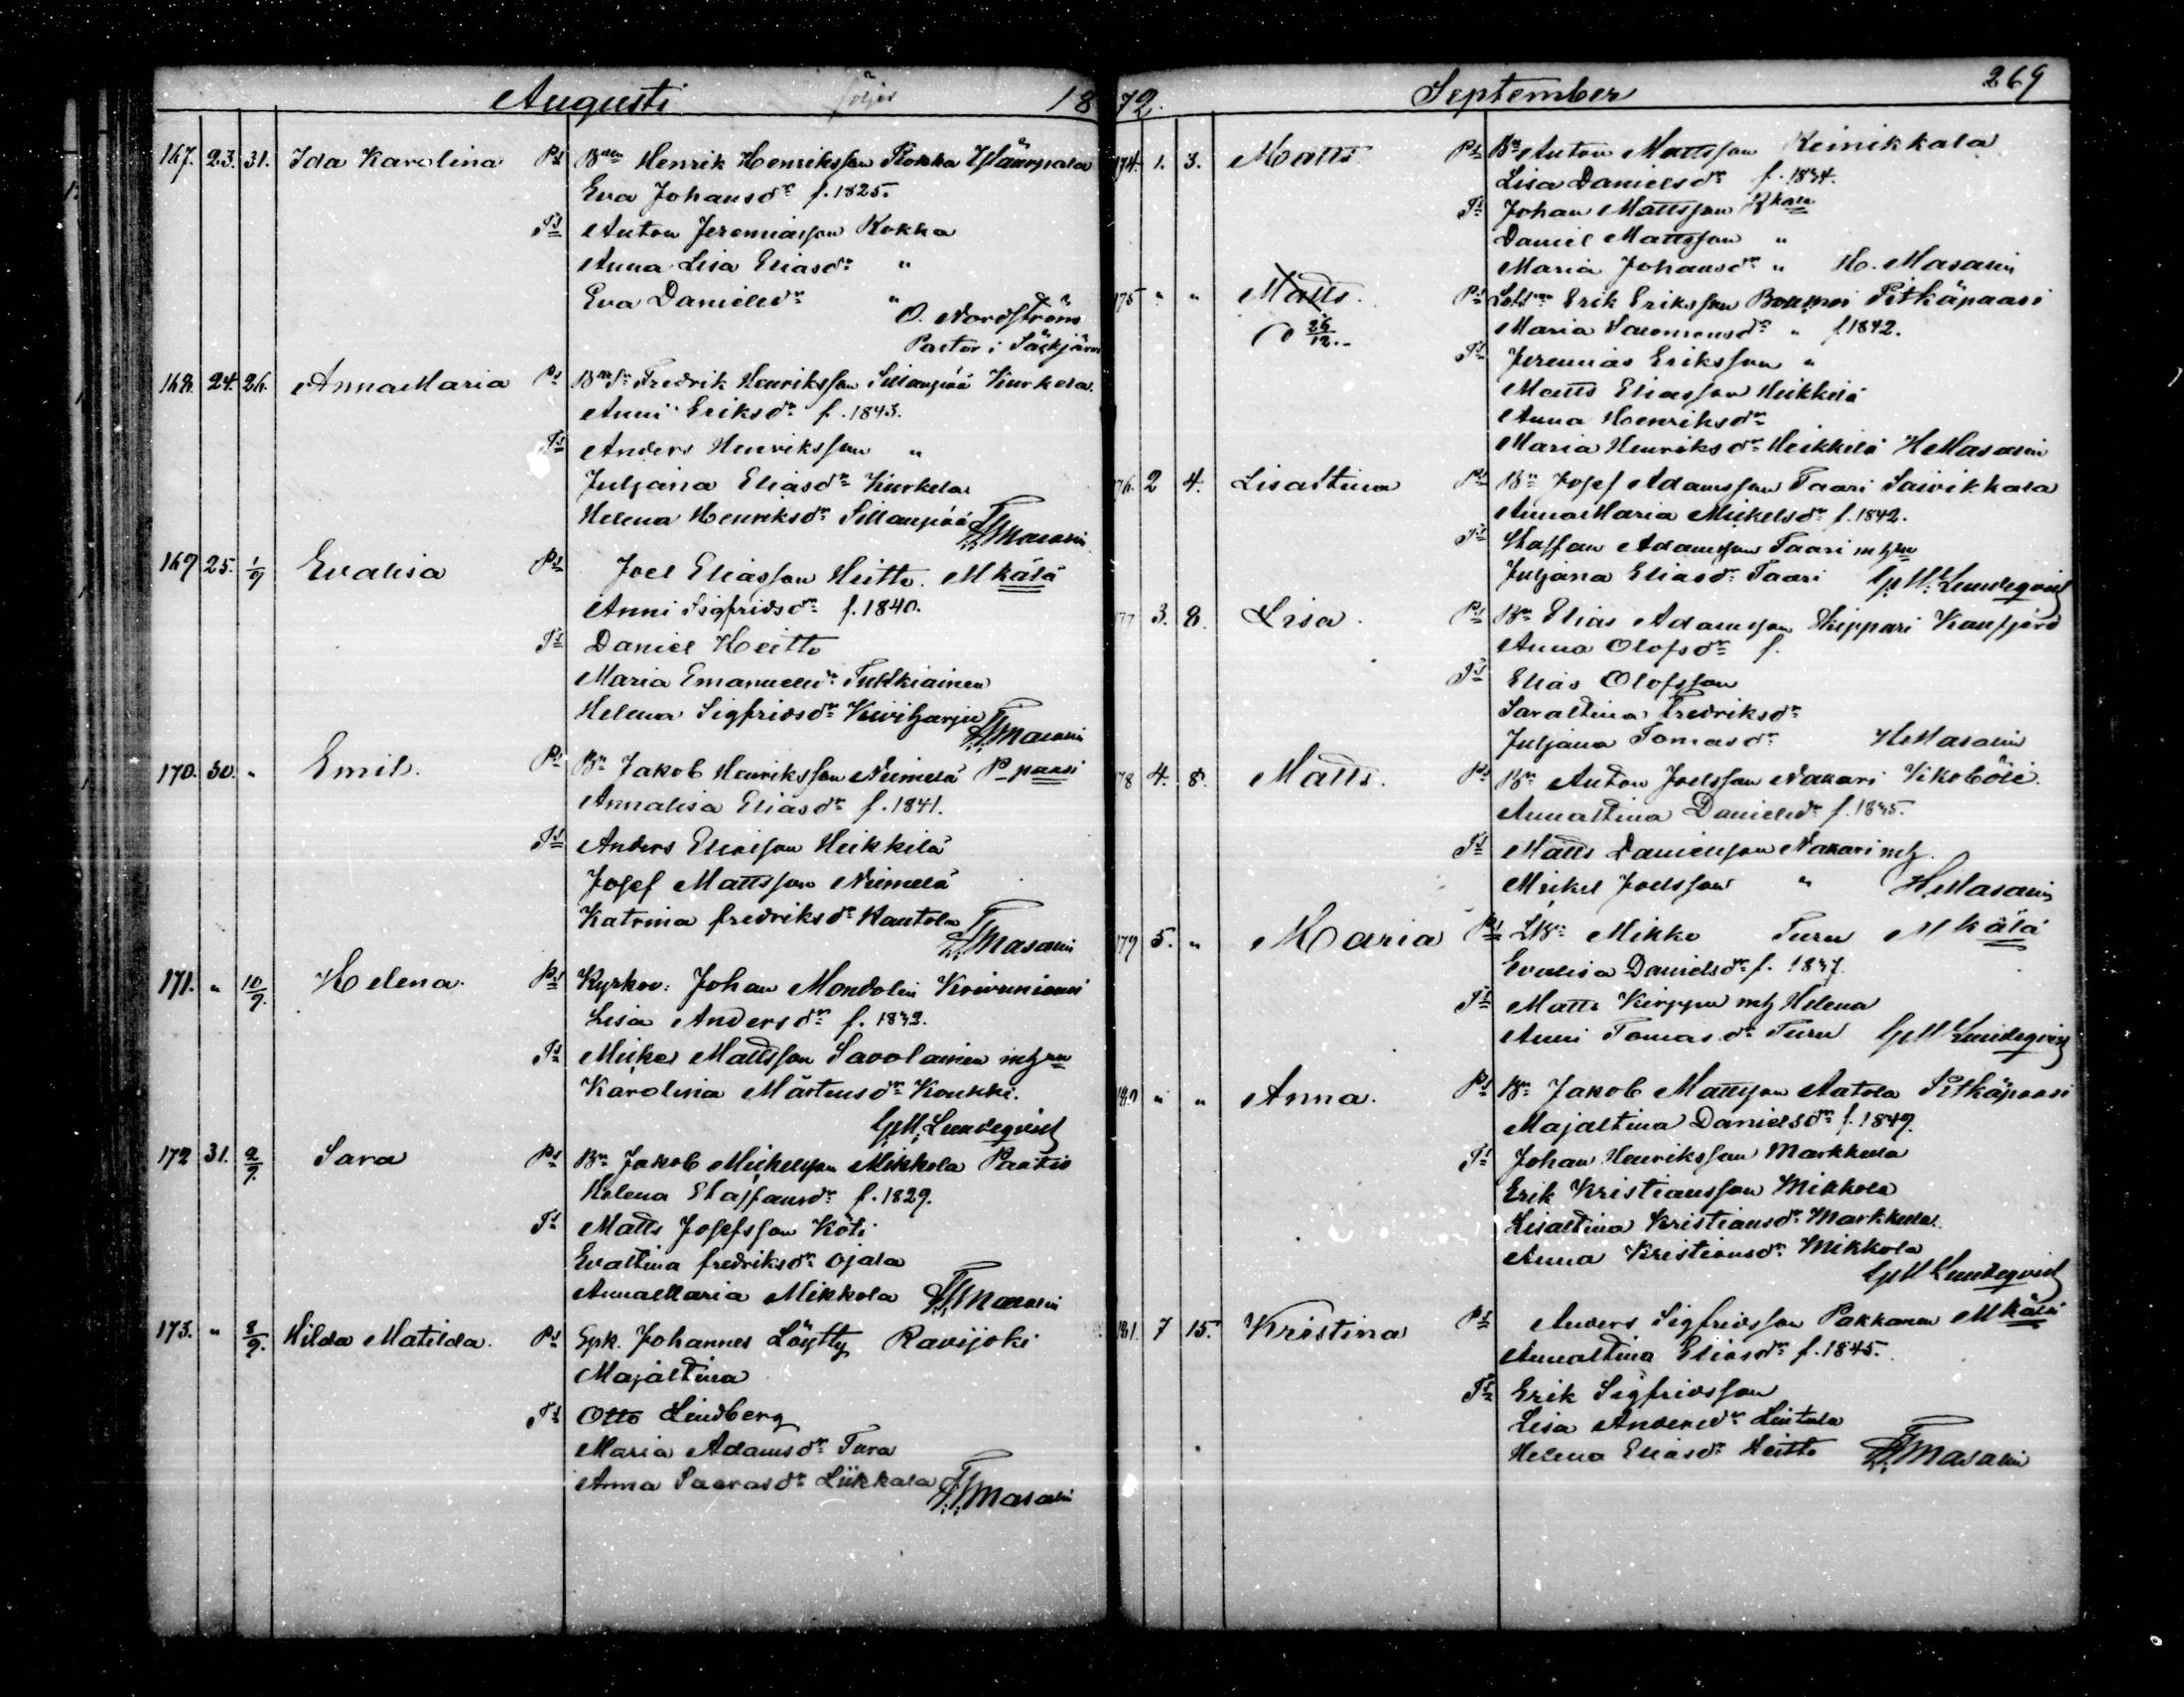 Augusti följer 18
167. 23. 31. Ida Karolina Ps Bdn Henrik Henriksson Kokka Yläurpala
Eva Johansdr f. 1825.
Ts Anton Jeremiasson Kokka
Anna Lisa Eliasdr "
Eva Danielsdr "
O. Nordström
Pastor i Säkjärvi
168. 24. 26. Anna Maria Ps Fredrik Henriksson Sillanpää Kurkela
Anni Eriksdr f. 1843.
Ts Anders Henriksson "
Juljana Eliasdr Kurkela
Helena Henriksdr Sillanpää Masalin
169 25. 1/9 Evalisa Ps Joel Eliasson Heitto. Mkälä
Anni Sigfridsdr f. 1840.
Ts Daniel Heitto
Maria Emanuelsdr Tukkiainen
Helena Sigfridsdr Kiviharju Masalin
170. 30. " Emil. Ps Bn Jakob Henriksson Niemelä P-paasi
Annalisa Eliasdr f. 1841.
Ts Anders Eliasson Heikkilä
Josef Mattsson Niemelä
Katrina fredriksdr Hantola
Masalin
171. " 10/9. Helena. Ps Kyrkov: Johan Mondolin Koivuniemi
Lisa Andersdr f. 1832.
Ts Mickel Mattsson Savolainen mh
Karolina Mårtensdr Koukki.
Lundeqvist
172 31. 2/9. Sara Ps Bn Jakob Michelsson Mikkola Paatio
Helena Staffansdr f. 1829.
Ts Matts Josefsson Köti
Evastina fredriksdr Ojala
Anna Maria Mikkola Masalin
173. " 8/9. Hilda Matilda. Ps Johannes Löytty Ravijoki
Majastina
Ts Otto Lindberg
Maria Adamsdr Tura
Anna Liikkala Masalin
72. September 269
174. 1. 3. Matts Ps Bn Anton Mattsson Reinikkala
Lisa Danielsdr f. 1834.
Ts Johan Mattsson Rkala
Daniel Mattsson "
Maria Johansdr " H. Masalin
175 " " Matts. Ps Erik Eriksson Pitkäpaasi
26/12. Maria Salomonsdr " f. 1842.
Ts Jeremias Eriksson "
Matts Eliasson Heikkilä
Anna Henriksdr
Maria Henriksdr Heikkilä H Masalin
176. 2 4. Lisastina Ps Bn Josef Adamsson Taari Säivikkälä
Anna Maria Mickelsdr f. 1842.
Ts Staffan Adamsson Taari mh
Juljana Eliasdr Taari Lundeqvist
177 3. 8. Lisa. Ps Bn Elias Adamsson Skippari
Anna Olofsdr f.
Ts Elias Olofsson
Sarastina Fredriksdr
Juljana Tomasdr H Masalin
178 4. 8. Matts. Ps Bn Anton Joelsson Nakari
Annastina Danielsdr f. 1835.
Ts Matts Danielsson Nakari mh.
Mickel Joelsson " H Masalin
179 5. " Maria Ps Mikko Turu Mkälä
Evalisa Danielsdr f. 1837.
Ts Matts Kirppu mh Helena
Anni Tomasdr Turu Lundeqvist
180 " " Anna. Ps Bn Jakob Mattsson Aatola Pitkäpaasi
Majastina Danielsdr f. 1849.
Ts Johan Henriksson Markkula
Erik Kristiansson Mikkola
Lisastina Kristiansdr Markkula.
Anna Kristiansdr Mikkola
Lundeqvist
181. 7 15. Kristina Ps Anders Sigfridsson Pakkanen Mkälä
Annastina Eliasdr f. 1845.
Ts Erik Sigfridsson
Lisa Andersdr Lintula
Helena Eliasdr Heitto Masalin